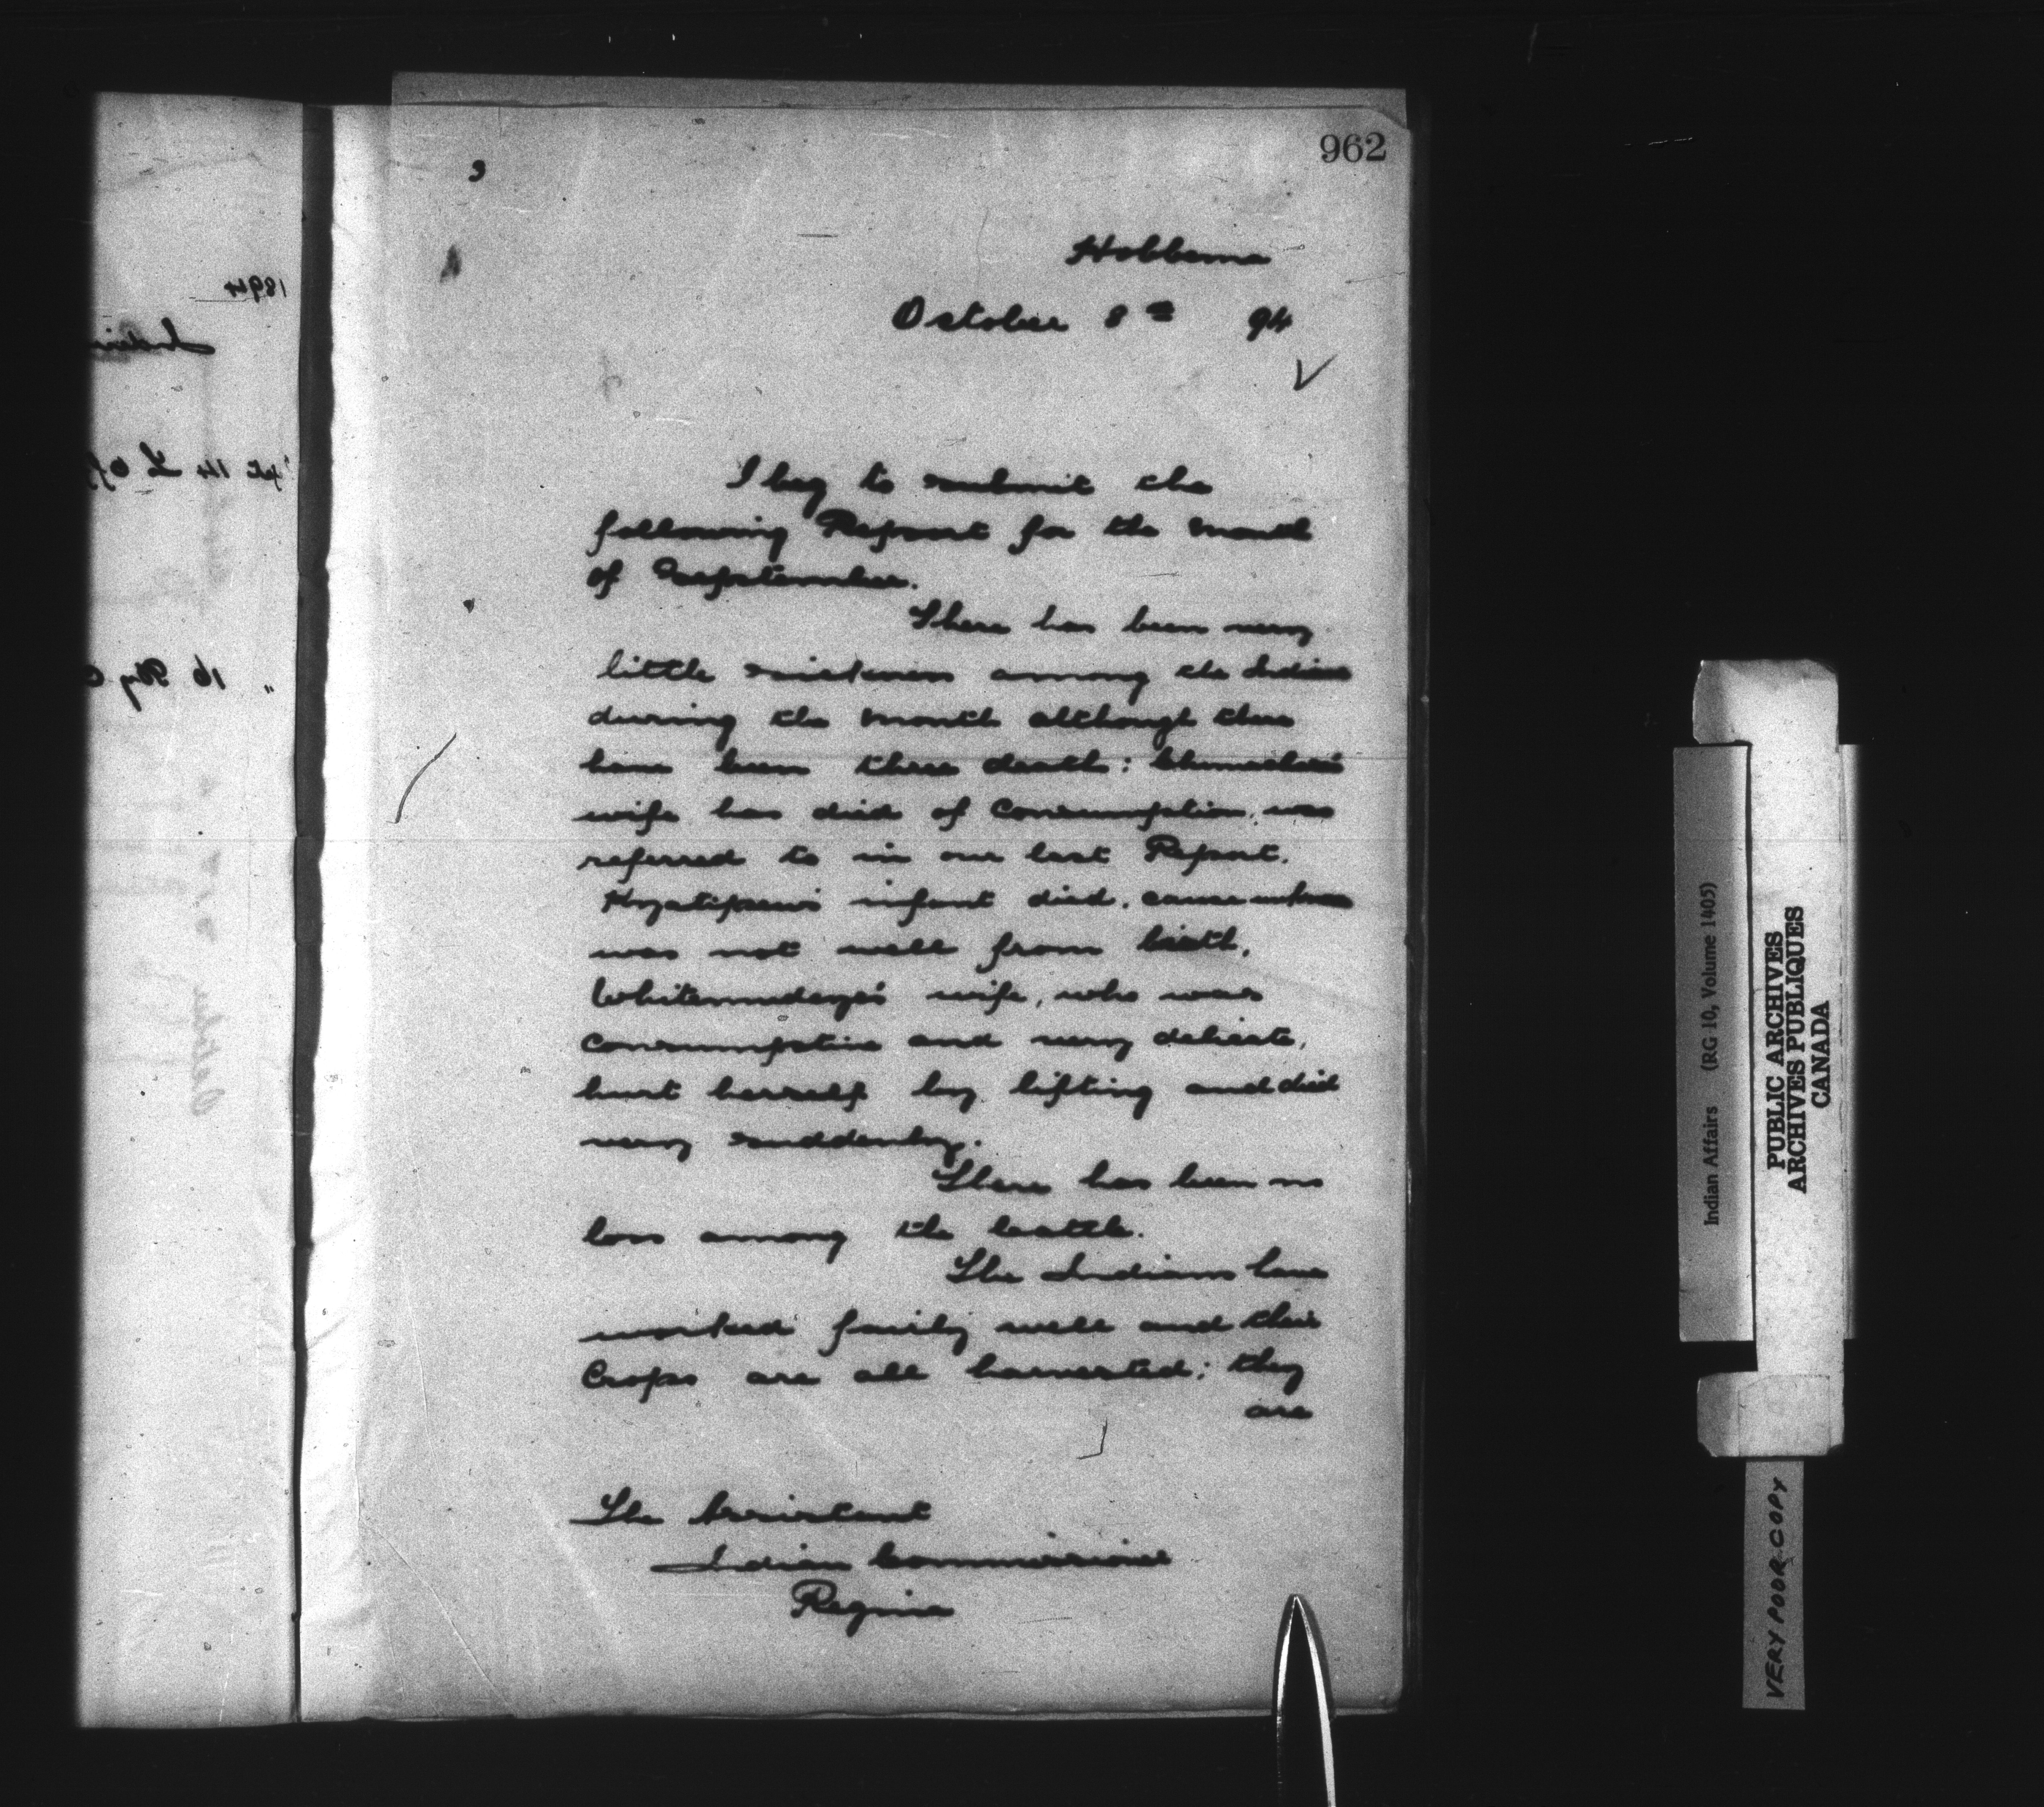 962
Hobbema
October 8th 94
I beg to submit the
following Report for the month
of September.
There has been very
little sickness among the Indians
during the month although there
have been three deaths:
wife has died of Consumption, was
referred to in our last Report.
infant died, cause unknown
was not well from birth.
wife, who was
Consumptive and very delicate,
hurt herself by lifting and died
very suddenly.
There has been no
loss among the Cattle.
The Indians have
worked fairly well and their
Crops are all harvested; they
are
The Assistant
Indian Commissioner
Regina
1894
Indian Affairs (RG 10, Volume 1405)
PUBLIC ARCHIVES
ARCHIVES PUBLIQUES
CANADA
VERY POOR COPY